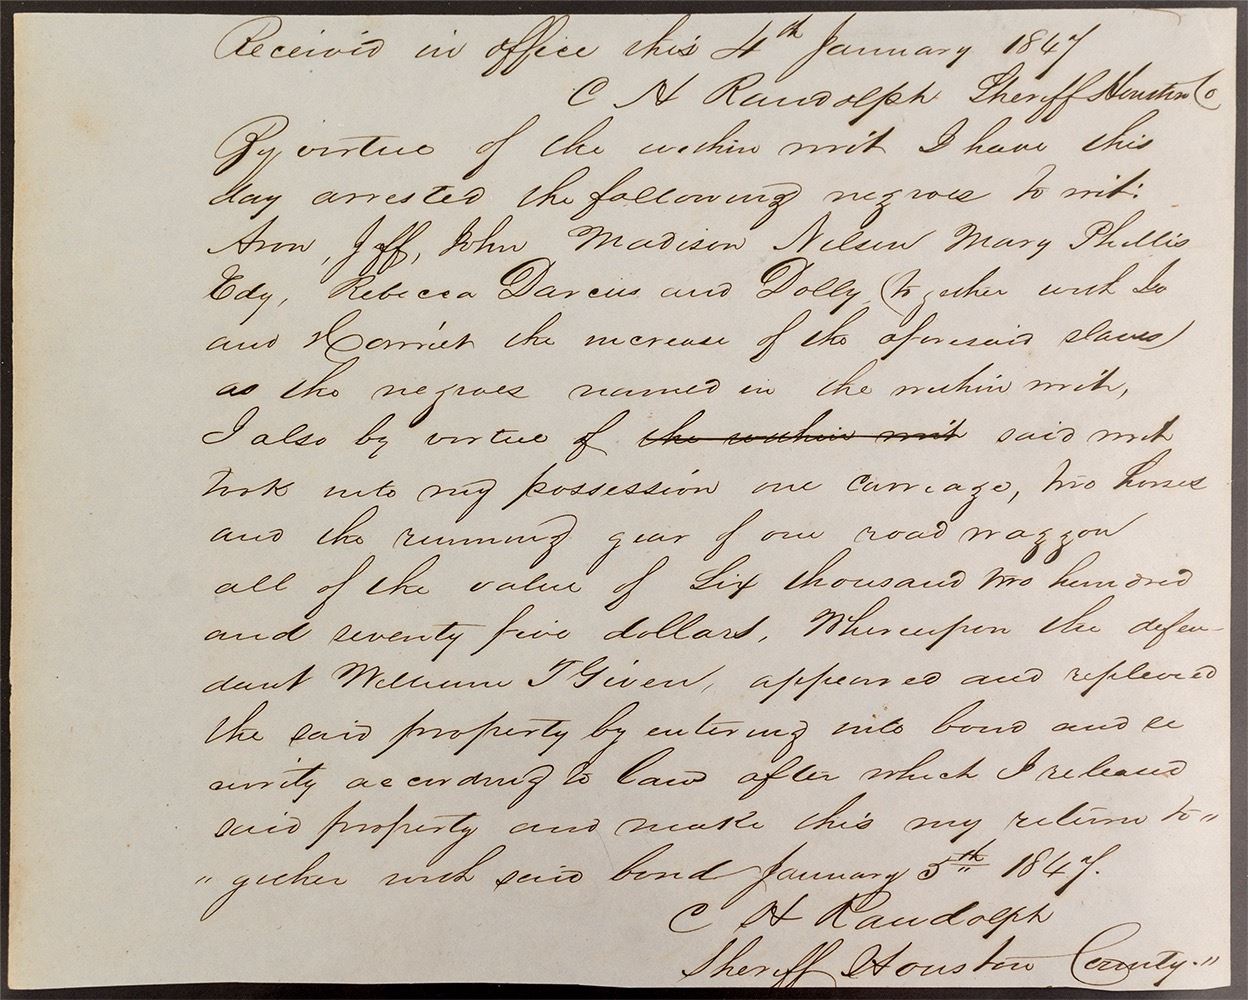 Received in office this 4th January 1847
C H Randolph Sheriff Houston Co
By virtue of the within writ I have this
day arrested the following negroes to wit:
Aron, Jeff, John Madison Nelson Mary Phillis
Edy, Rebecca Darcus and Dolly, (together with Jo
and Harriet the increase of the aforesaid slaves)
as the negroes named in the within writ,
I also by virtue of the within writ said writ
took into my possession one carriage, two horses
and the running gear of one road waggon
all of the value of Six thousand two hundred
and seventy five dollars, Whereupon the defen-
dant William T Given, appeared and replevied
the said property by entering into bond and se
curity according to law after which I released
said property and make this my return to "
" gether with said bond January 5th 1847.
C H Randolph
Sheriff Houston County."